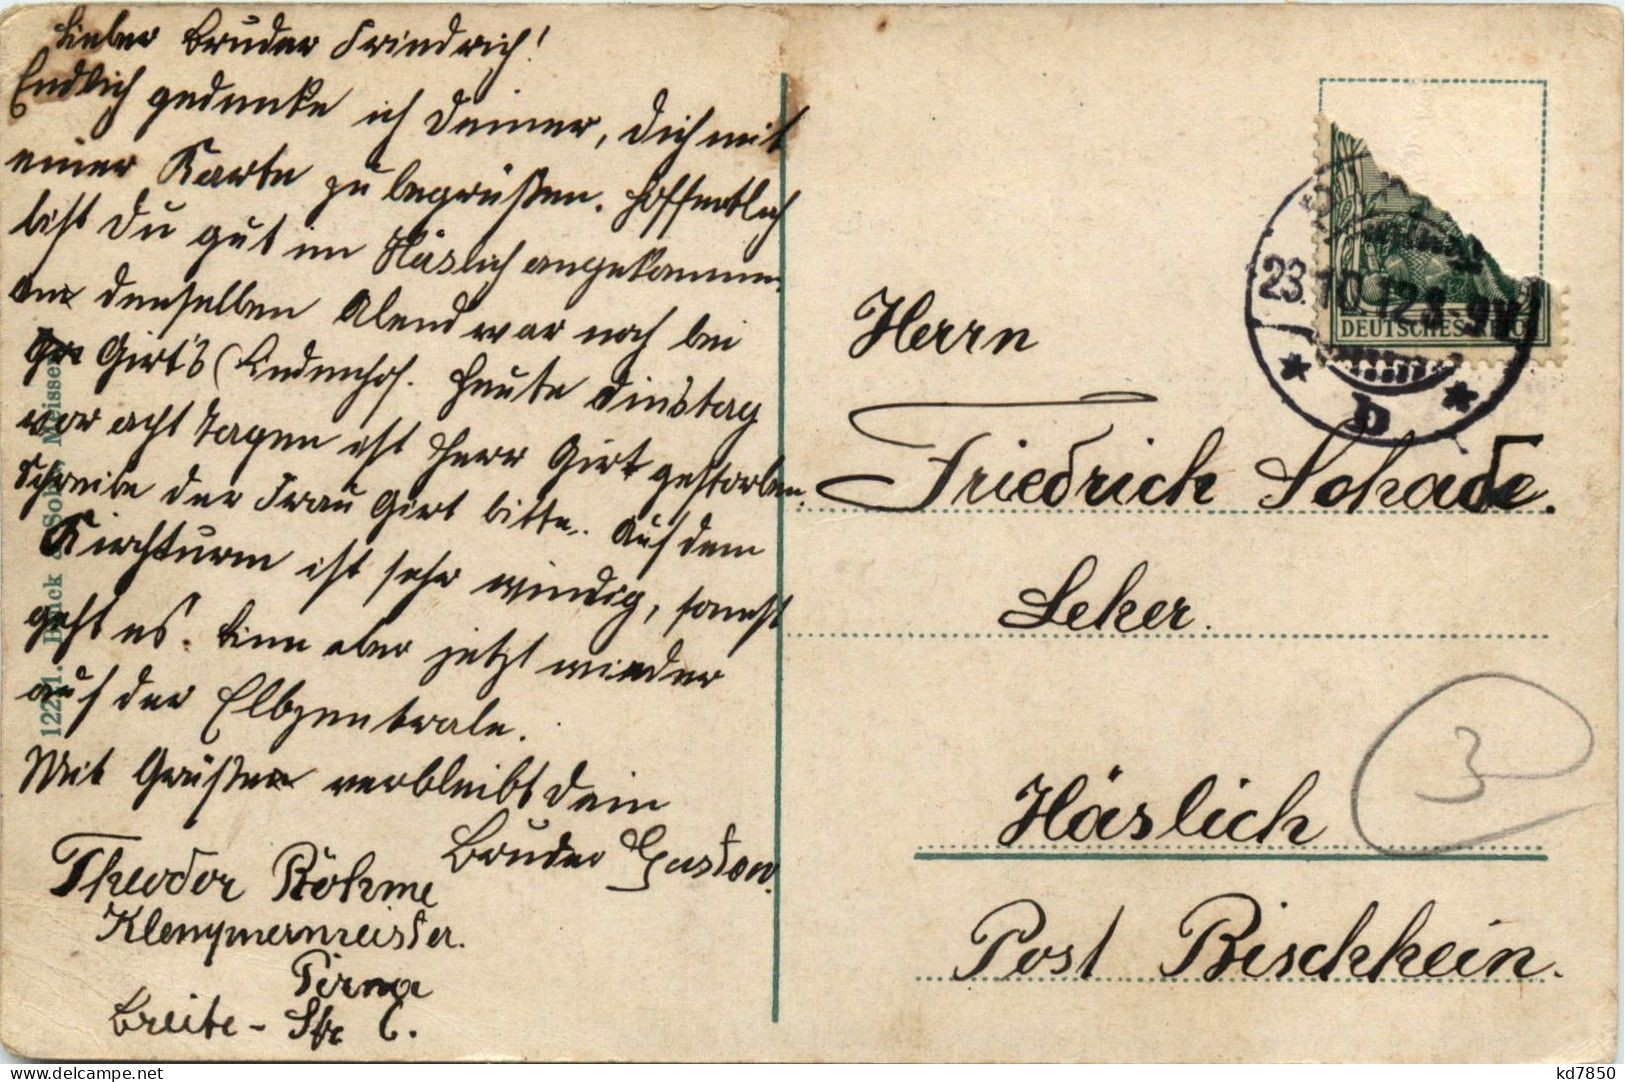 Lieber Bruder Friedrich!
Endlich gedenke ich Deiner, Dich mit
einer Karte zu begrüßen. Hoffentlich
bist Du gut im Häslich angekommen.
An demselben Abend war noch bei
Girt's (Lindenhof. Heute Dinstag
vor acht Tagen ist Herr Girt gestorben.
Schreibe der Frau Girt bitte. Auf dem
Kirchturm ist sehr windig, sonst
geht es. Bin aber jetzt wieder
auf der Elbzentrale.
Mit Grüßen verbleibt Dein
Bruder Gustav.
Theodor Böhme
Klempnermeister.
Pirna
Breite-Str 6.
Herrn
Friedrich Schade.
Leher.
Häslich
Post Bischhein.
3
DEUTSCHES REICH
23.10.12 8-9V
* b *
Brück & Sohn, Meissen
kd7850